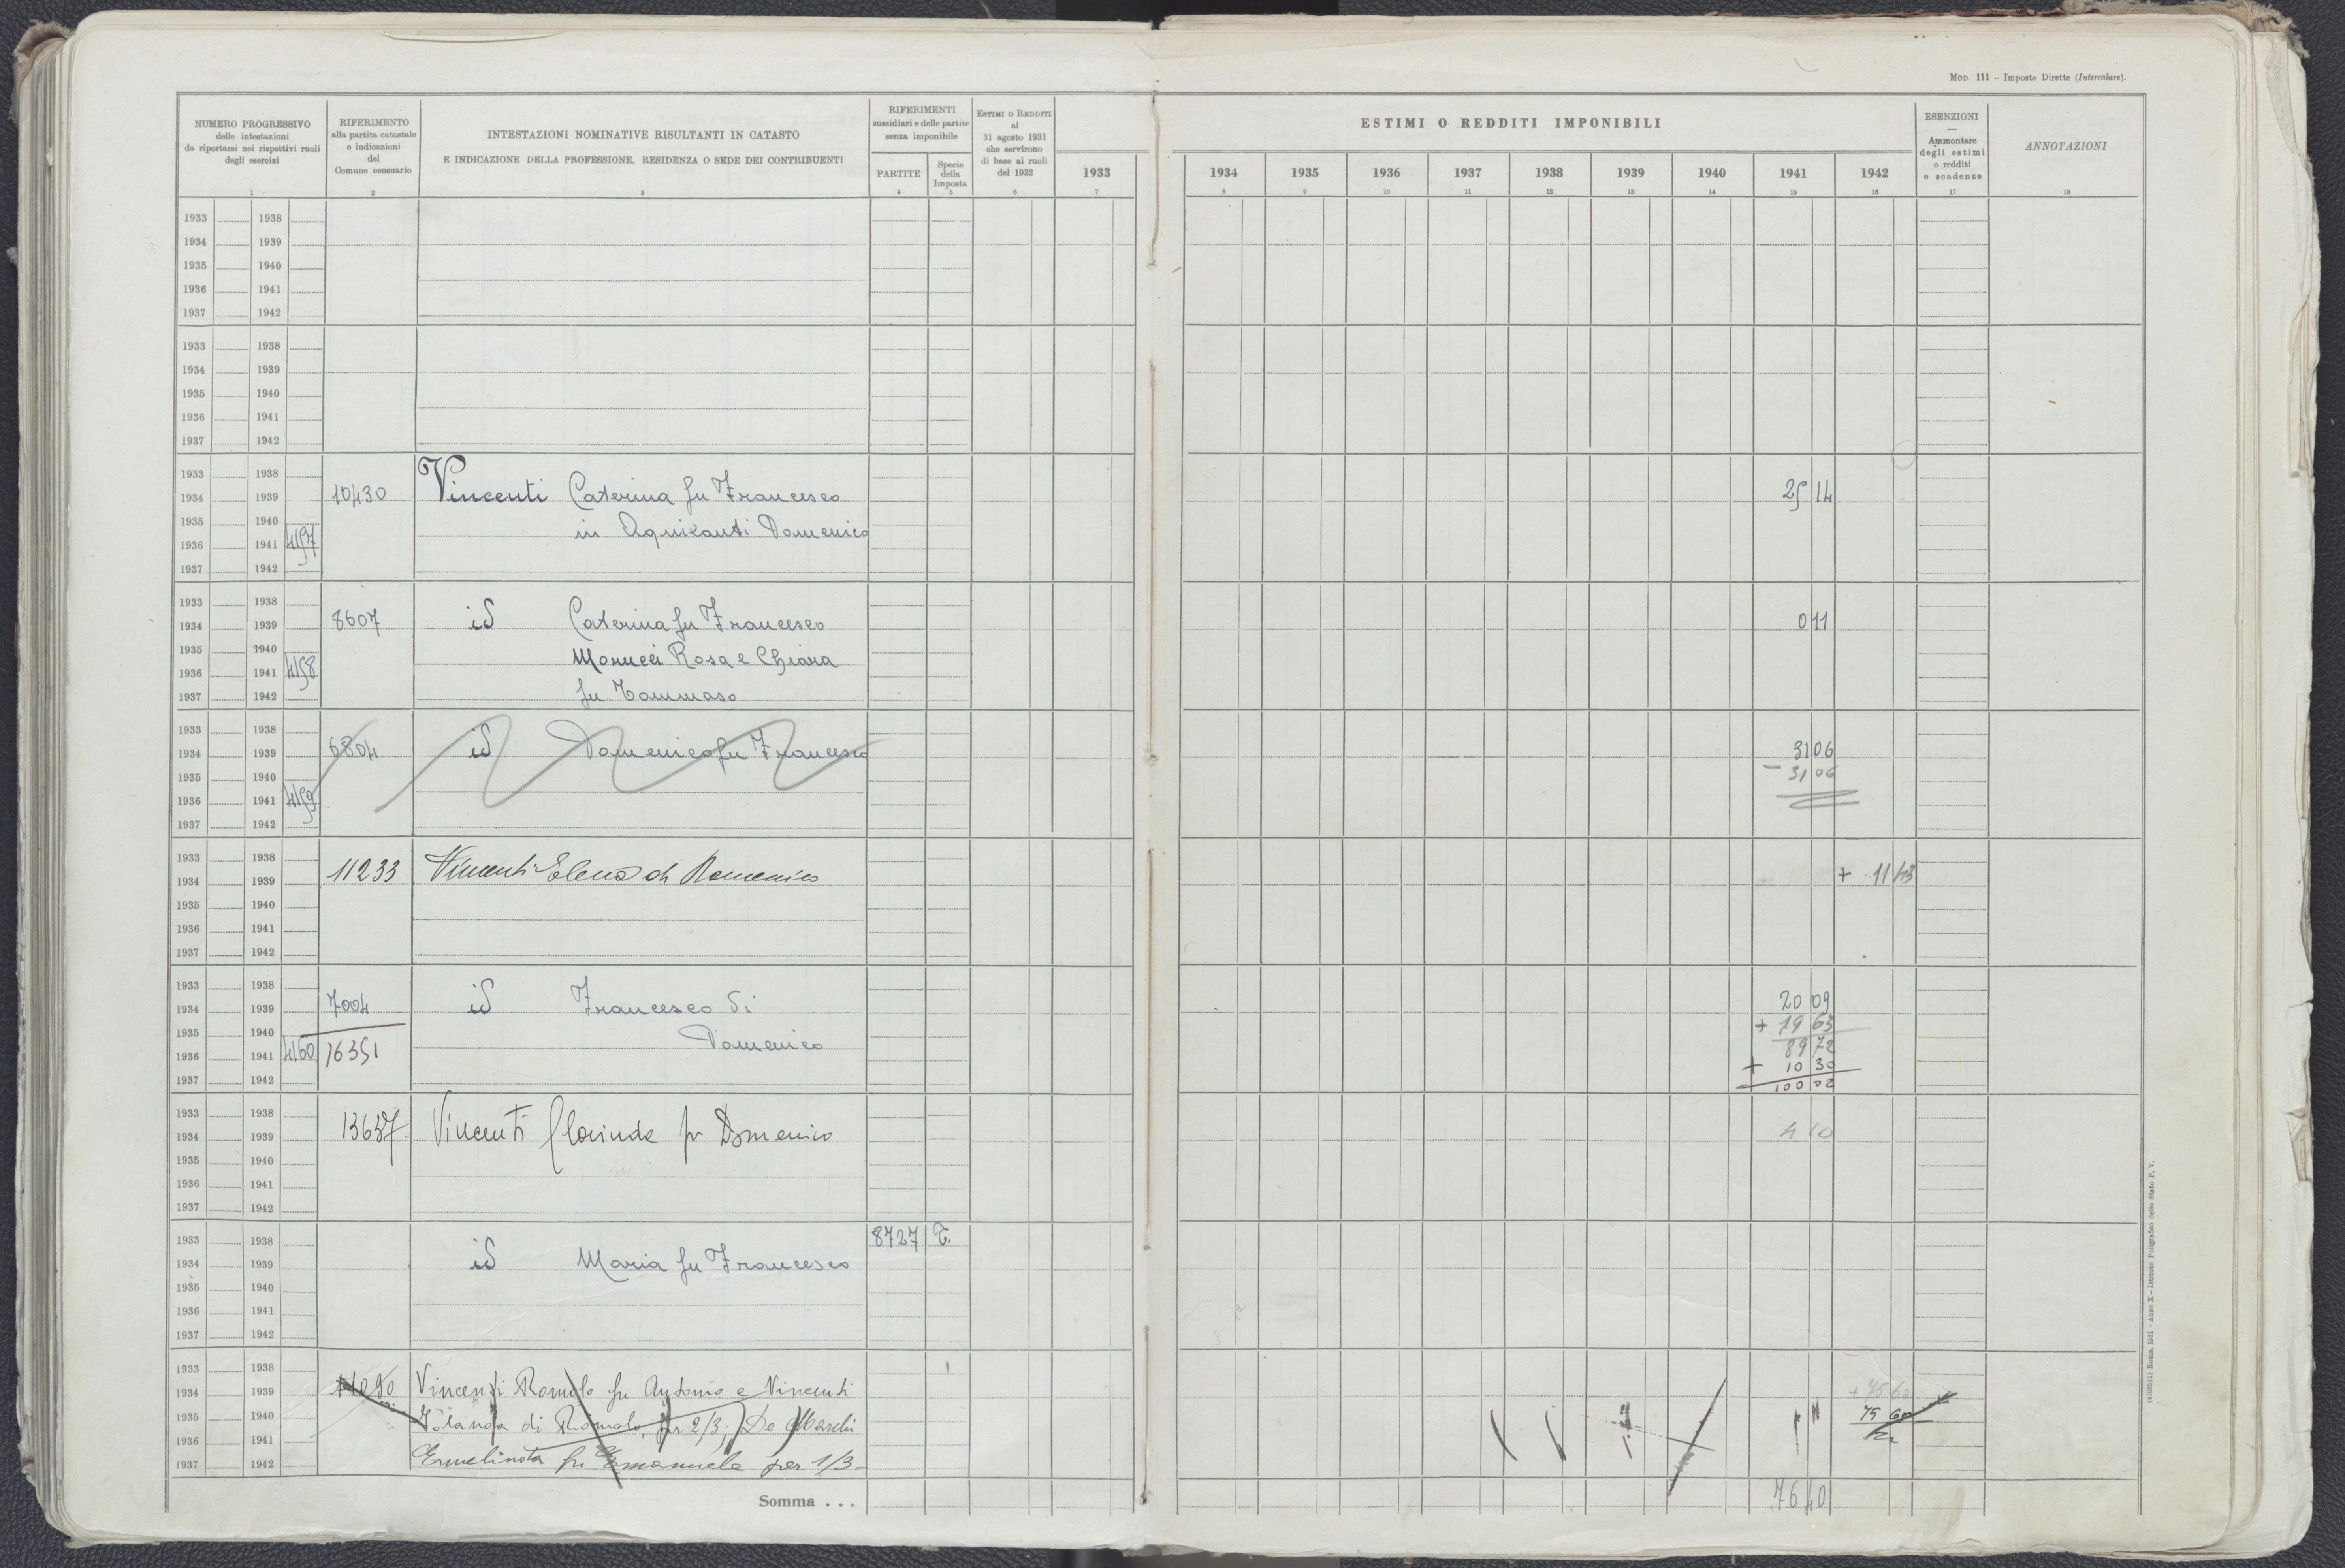 Mod. 111 - Imposte Dirette (Intercalare).
NUMERO PROGRESSIVO
delle intestazioni
da riportarsi nei rispettivi ruoli
degli esercizi
1
RIFERIMENTO
alla partita catastale
e indicazioni
del
Comune censuario
2
INTESTAZIONI NOMINATIVE RISULTANTI IN CATASTO
E INDICAZIONE DELLA PROFESSIONE, RESIDENZA O SEDE DEI CONTRIBUENTI
3
RIFERIMENTI
sussidiari e delle partite
senza imponibile
PARTITE
4
Specie
della
Imposta
5
ESTIMI O REDDITI
al
31 agosto 1931
che servirono
di base ai ruoli
del 1932
6
ESTIMI O REDDITI IMPONIBILI
1933 1934 1935 1936 1937 1938 1939 1940 1941 1942
7 8 9 10 11 12 13 14 15 16
ESENZIONI
—
Ammontare
degli estimi
o redditi
e scadenze
17
ANNOTAZIONI
18
1933 1938
1934 1939
1935 1940
1936 1941
1937 1942
1933 1938
1934 1939
1935 1940
1936 1941
1937 1942
1933 1938
1934 1939 10430 Vincenti Caterina fu Francesco 25 14
1935 1940 in Aquilanti Domenico
1936 1941 4157
1937 1942
1933 1938
1934 1939 8607 id Caterina fu Francesco 0 11
1935 1940 Marucci Rosa e Chiara
1936 1941 4158
1937 1942 fu Tommaso
1933 1938
1934 1939 6804 id Domenico fu Francesco 31 06
1935 1940 - 31 06
1936 1941 4159
1937 1942
1933 1938
1934 1939 11233 Vincenti Elena di Domenico + 11 43
1935 1940
1936 1941
1937 1942
1933 1938
1934 1939 7004 id Francesco di 20 09
1935 1940 Domenico + 19 63
1936 1941 4160 16351 89 72
1937 1942 + 10 30
100 02
1933 1938
1934 1939 13637 Vincenti Clorinda fu Domenico 4 10
1935 1940
1936 1941
1937 1942
1933 1938 8727 T.
1934 1939 id Maria fu Francesco
1935 1940
1936 1941
1937 1942
1933 1938
1934 1939 11090 Vincenti Romolo fu Antonio e Vincenti + 75 60
1935 1940 Iolanda di Romolo, per 2/3; De Marchi 75 60
1936 1941
1937 1942 Ermelinda fu Emanuele per 1/3
Somma . . . 76 40
(4106551) Roma, 1931 - Anno X - Istituto Poligrafico dello Stato P. V.